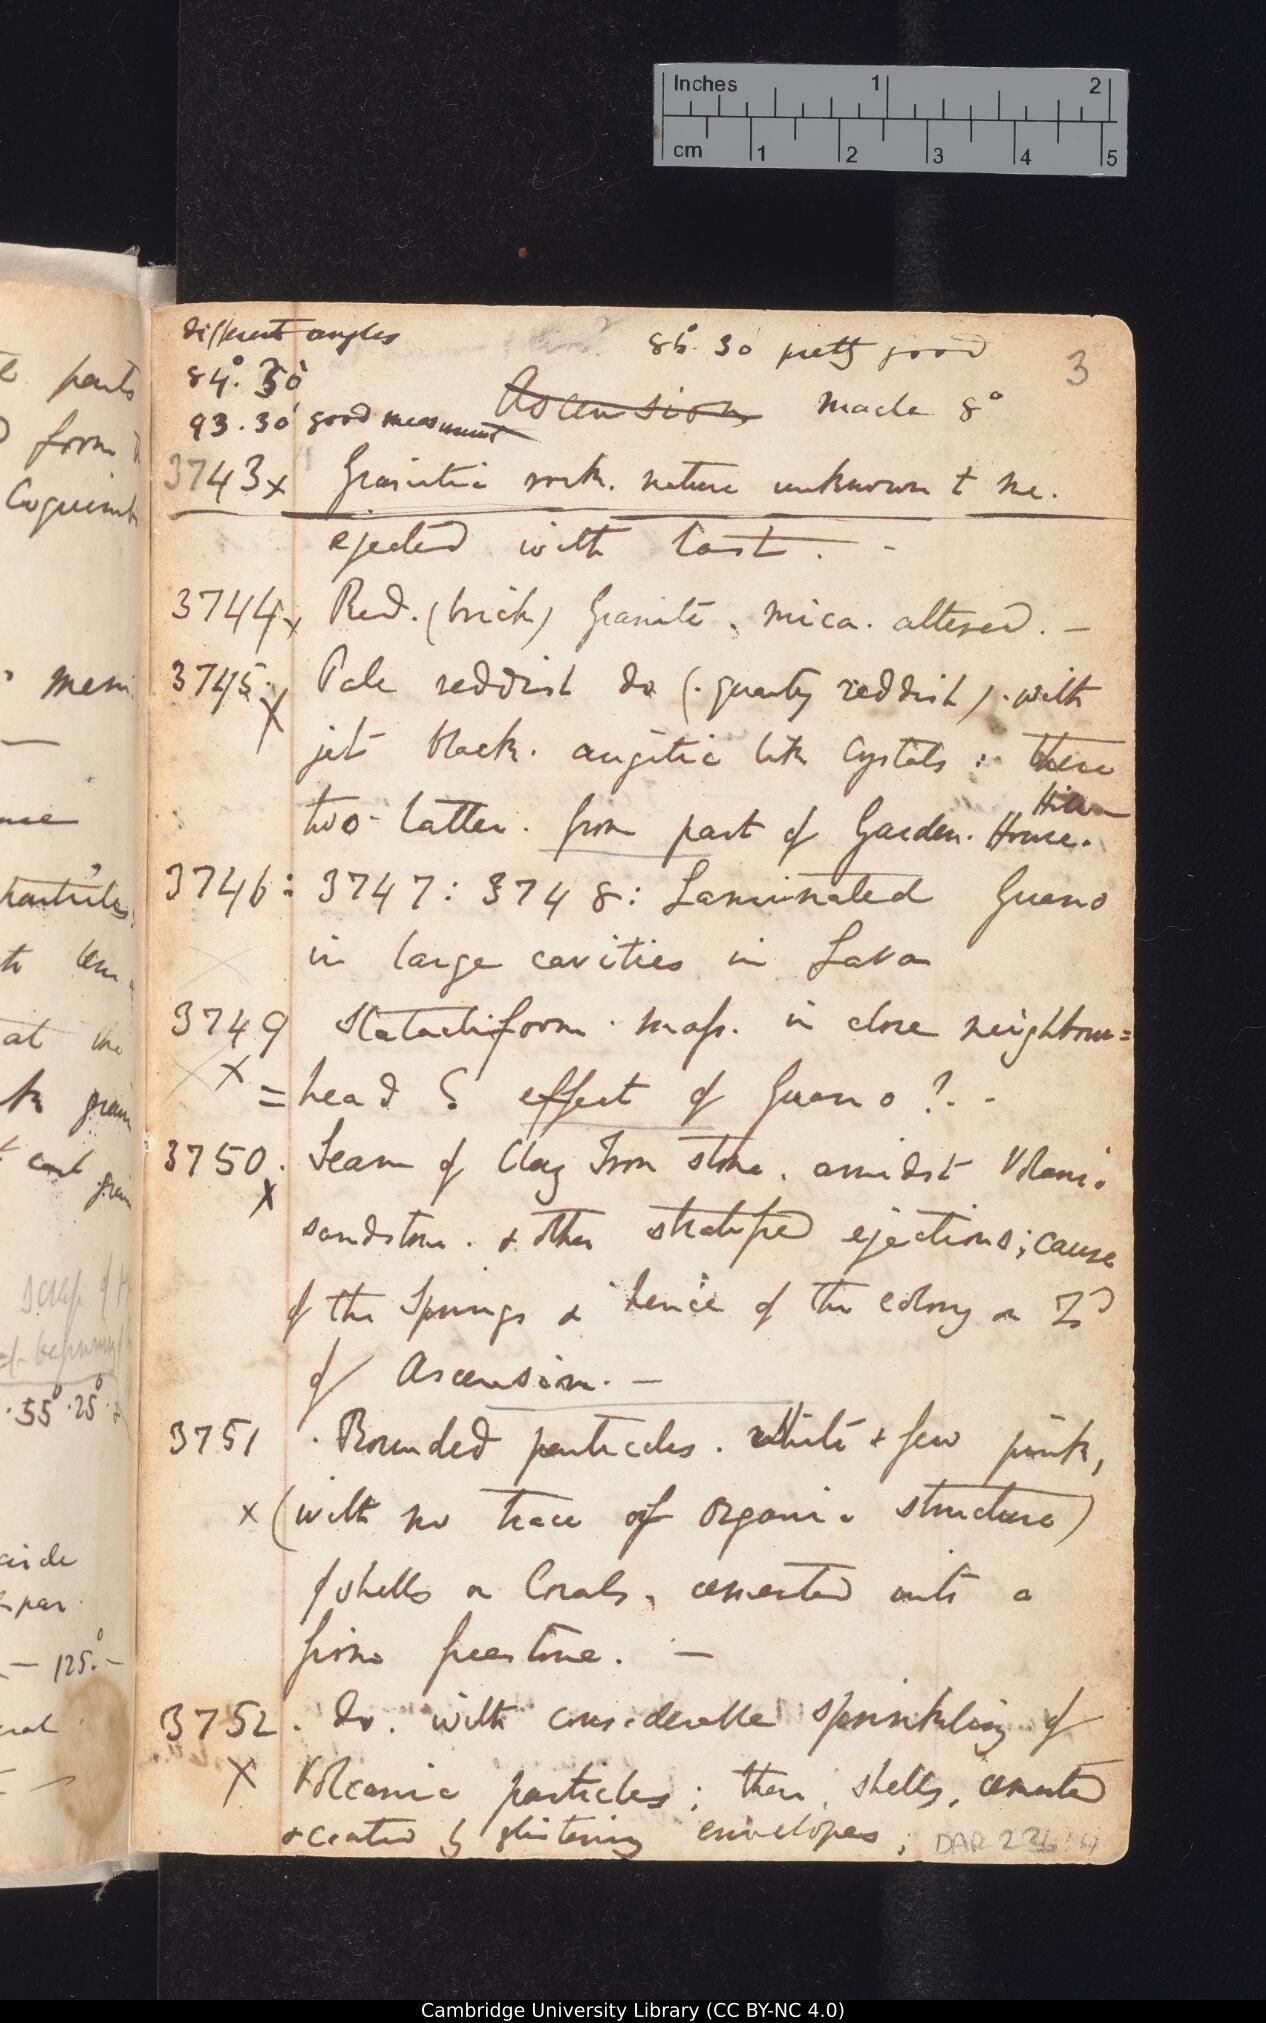 Inches 1 2
cm 1 2 3 4 5
different angles
86°. 30' pretty good
3
84°. 30'
Ascension made 8°
93. 30' good measurement
3743 x Granitic rock. nature unknown to me.
ejected with last. -
3744 x Red. (brick) Granite, mica. altered. —
3745. x Pale reddish do (. quartz reddish). with
jet black. augitic like crystals : these
Hill
two latter. from part of Garden. House.
3746: 3747: 3748: Laminated Guano
in large cavities in Lava
3749 Stalactiform. mass. in close neighbour=
x =head ? effect of Guano?. -
3750. Seam of Clay Iron stone. amidst Volcanic
x sandstone. & other stratified ejections; cause
of the Springs & hence of the colony on Isd
of Ascension. —
3751 . Rounded particles. white & few pink,
x (with no trace of organic structure)
of shells or Corals, cemented into a
firm freestone. —
3752. do. with considerable sprinkling of
x Volcanic particles; these, shells, cemented
& coated by glistening envelopes;
DAR 236:4
parts
from
Coquimb
particles
at the
grain
grain
. 55°. 25°.
— 125°. —
Cambridge University Library (CC BY-NC 4.0)